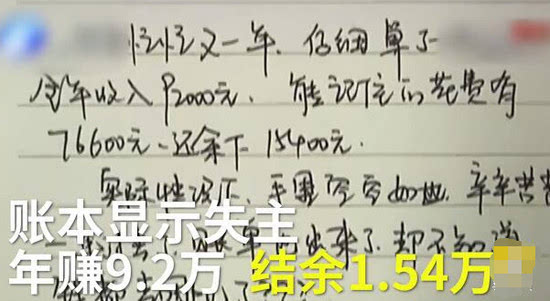 忙忙又一年、仔细算了
全年收入92000元、能记住的花费有
76600元、还余下15400元.
实际情况下、手里空空如也、辛辛苦苦
账本显示失主
一年过去了, 来了, 却不知道
年赚9.2万 结余1.54万